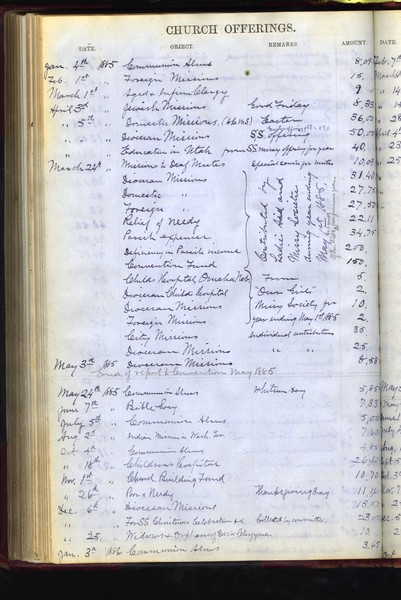 CHURCH OFFERINGS.
DATE. OBJECT. REMARKS. AMOUNT. DATE.
Jan. 4th 1885 Communion Alms 8,05 Feb. 7th
Feb. 1st " Foreign Missions 15, March
March 1st " Aged & Infirm Clergy 9
April 3d " Jewish Missions Good Friday 5,83
" 5th " Domestic Missions, Easter 36,00
" Diocesan Missions S.S. offering 50,00
" Education in Utah from S.S. offering for year 40,
March 24th " Missions to Deaf Mutes Special service for mutes 10,09
Diocesan Missions 31.40
Domestic " 27,75
Foreign " 27,50
Relief of Needy 22,11
Parish expenses 34,75
Deficiency in Parish income 200.
Convention Fund 150.
Contributed by Ladies Aid and Miss'y Societies during year ending May 1st 1885
Child's Hospital, Omaha Neb. From 5
Diocesan Child's Hospital "Our Girls" 2.
Diocesan Missions Miss'y Society for 10,
Foreign Missions year ending May 1st, 1885 2,
City Missions Individual contributions 35,
Diocesan Missions " " 25,
May 3d 1885 Diocesan Missions 8,58
End of report to Convention May 1885
May 24th 1885 Communion Alms Whitsun day 5,85
June 7th " Bible Soc'y 7,83
July 5th " Communion Alms 5,00
Aug. 2d " Indian Missions Wash. Ter.
Oct. 4th " Communion Alms
" 18th " Children's Hospital
Nov. 1st " Church Building Fund 10,70
" 26th " Poor & Needy Thanksgiving Day. 11,14
Dec. 6th " Diocesan Missions
" For SS Christmas Celebration &c Collected by committee
" 25, " Widows & Orp'l among Dec'd Clergymen 10
Jan. 3d 1886 Communion Alms 3,65